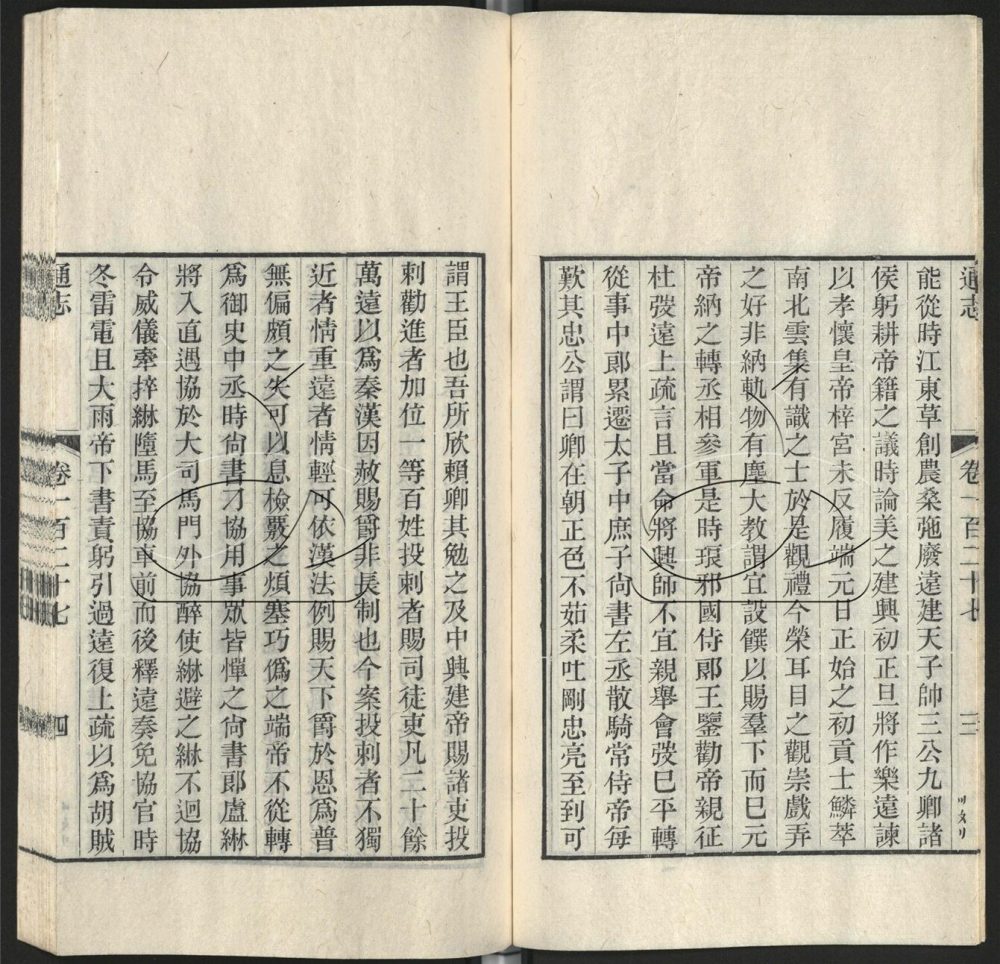 通志
卷一百二十七
三
能從時江東草創農桑弛廢遠建天子帥三公九卿諸
侯躬耕帝籍之議時論美之建興初正旦將作樂遠諫
以孝懷皇帝梓宮未反履端元日正始之初貢士鱗萃
南北雲集有識之士於是觀禮今榮耳目之觀崇戲弄
之好非納軌物有塵大教謂宜設饌以賜羣下而巳元
帝納之轉丞相參軍是時琅邪國侍郞王鑒勸帝親征
杜弢遠上疏言且當命將興師不宜親舉會弢巳平轉
從事中郞累遷太子中庶子尙書左丞散騎常侍帝每
歎其忠公謂曰卿在朝正色不茹柔吐剛忠亮至到可
謂王臣也吾所欣賴卿其勉之及中興建帝賜諸吏投
刺勸進者加位一等百姓投刺者賜司徒吏凡二十餘
萬遠以爲秦漢因赦賜爵非長制也今案投刺者不獨
近者情重遠者情輕可依漢法例賜天下爵於恩爲普
無偏頗之失可以息檢覈之煩塞巧僞之端帝不從轉
爲御史中丞時尙書刁協用事眾皆憚之尙書郞盧綝
將入直遇協於大司馬門外協醉使綝避之綝不迴協
令威儀牽捽綝墮馬至協車前而後釋遠奏免協官時
冬雷電且大雨帝下書責躬引過遠復上疏以爲胡賊
通志
卷一百二十七
四